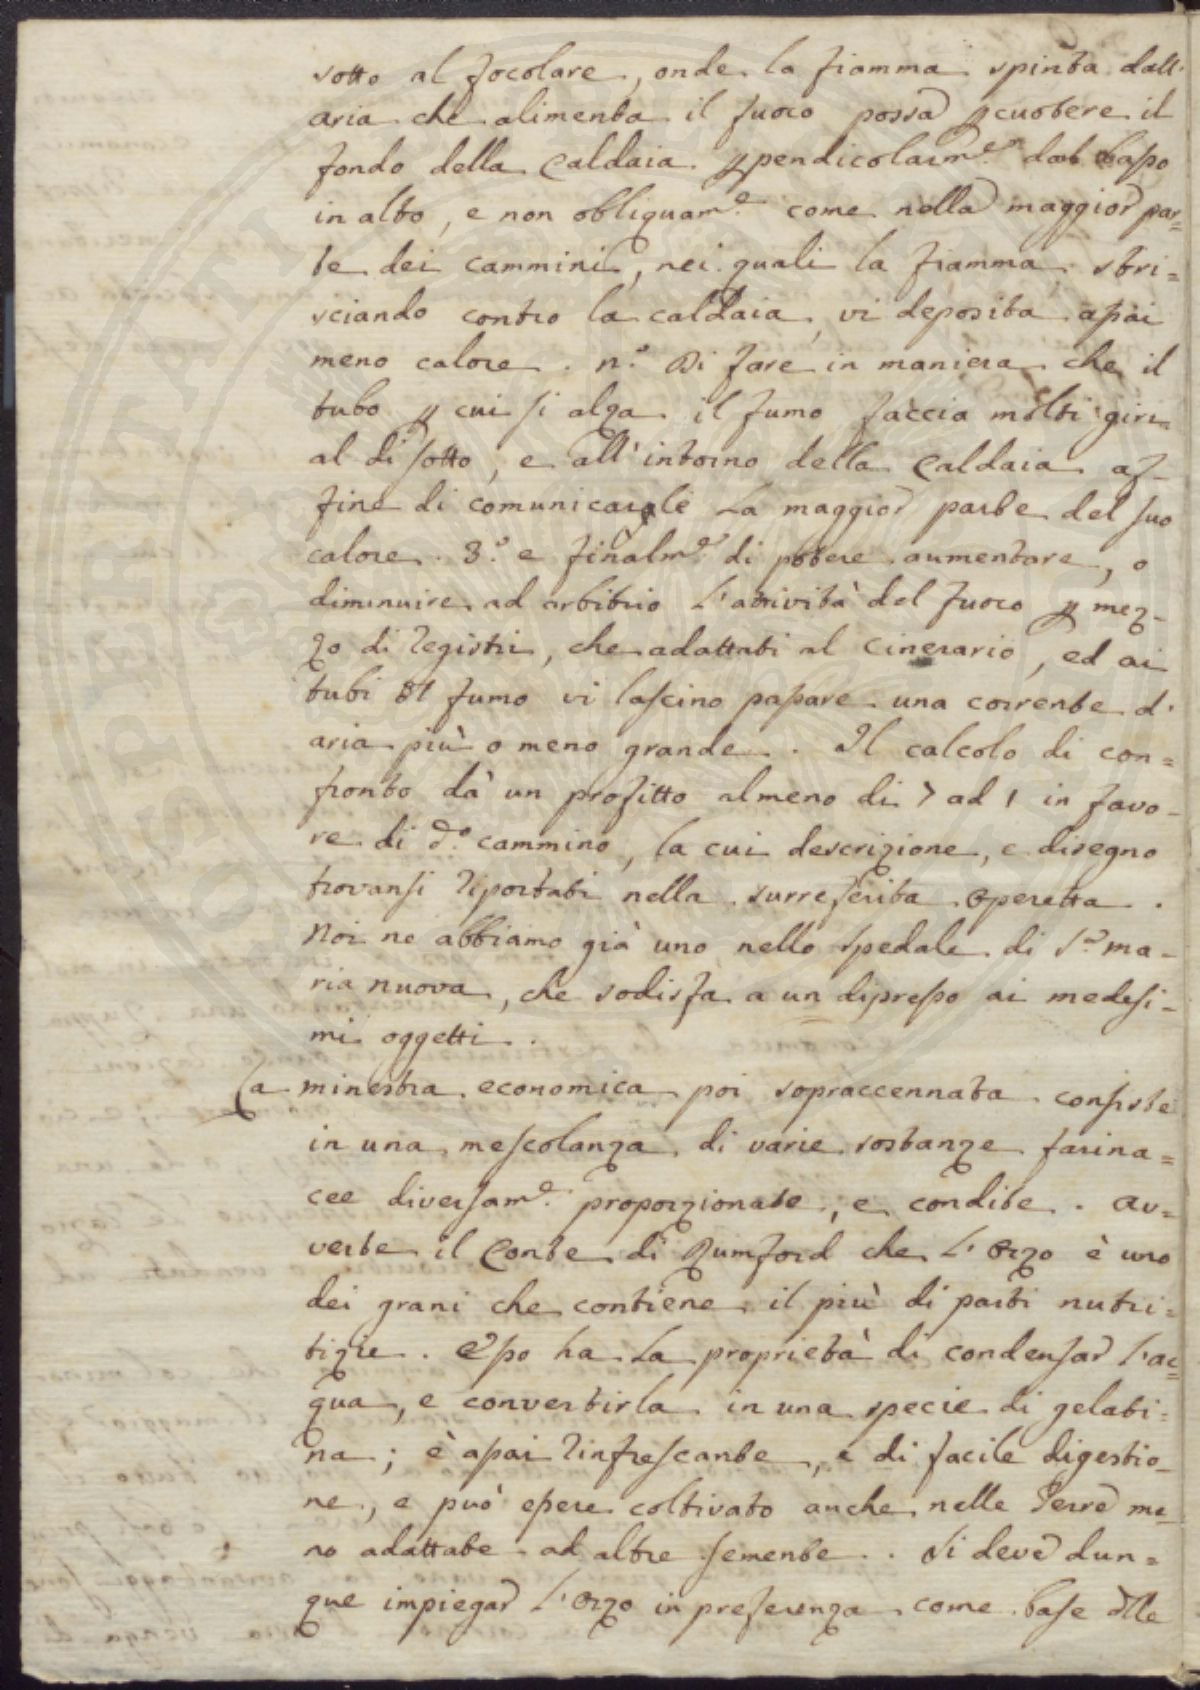 sotto al focolare, onde la fiamma spinta dall'
aria che alimenta il fuoco possa pcuotere il
fondo della Caldaia ppendicolarm.e dal basso
in alto, e non obliquam.e come nella maggior par=
te dei cammini, nei quali la fiamma stri=
sciando contro la caldaia, vi deposita assai
meno calore. n.o Di fare in maniera che il
tubo p cui si alza il fumo faccia molti giri
al di sotto, e all'intorno della Caldaia af-
fine di comunicarle La maggior parte del suo
calore. 3.o e finalm.e di potere aumentare, o
diminuire ad arbitrio L'attività del fuoco p mez-
zo di registri, che adattati al Cinerario, ed ai
tubi dl fumo vi lascino passare una corrente d'
aria più o meno grande. Il calcolo di con=
fronto dà un profitto almeno di 7 ad 1 in favo-
re di d.o cammino, la cui descrizione, e disegno
trovansi riportati nella surreferita Operetta.
Noi ne abbiamo già uno nello spedale di S.a Ma-
ria nuova, che sodisfa a un dipresso ai medesi-
mi oggetti.
La minestra economica poi sopraccennata consiste
in una mescolanza di varie sostanze farina=
cee diversam.e proporzionate, e condite. Av=
verte il Conte di Rumford che L'Orzo è uno
dei grani che contiene il più di parti nutri=
tizie. Esso ha La proprietà di condensar l'ac=
qua, e convertirla in una specie di gelati=
na; è assai rinfrescante, e di facile digestio-
ne, e può essere coltivato anche nelle Terre me-
no adattate ad altre semente. Si deve dun=
que impiegar L'Orzo in preferenza come base dlle